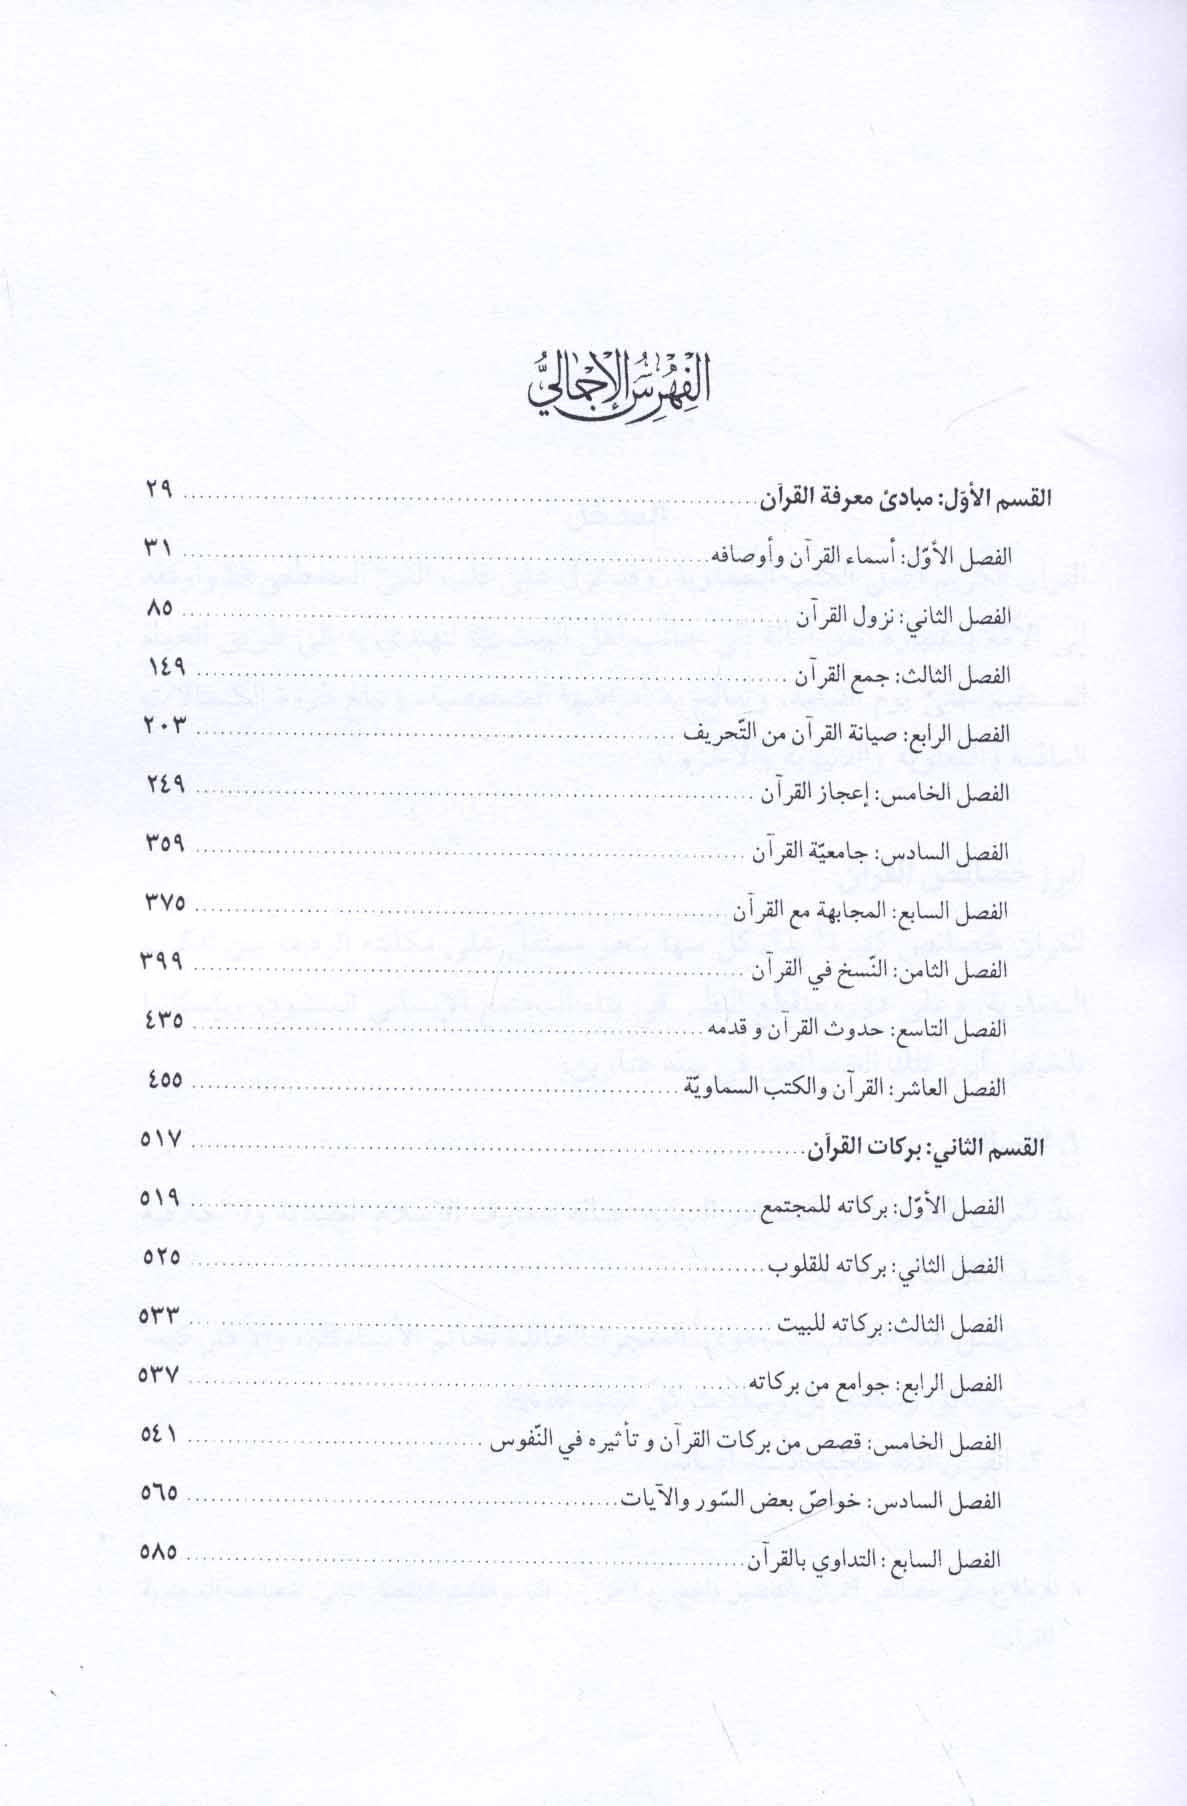 الفِهْرِسُ الإِجْمَالِيُّ
القسم الأوّل: مبادئ معرفة القرآن ............ ٢٩
الفصل الأوّل: أسماء القرآن وأوصافه ............ ٣١
الفصل الثاني: نزول القرآن ............ ٨٥
الفصل الثالث: جمع القرآن ............ ١٤٩
الفصل الرابع: صيانة القرآن من التّحريف ............ ٢٠٣
الفصل الخامس: إعجاز القرآن ............ ٢٤٩
الفصل السادس: جامعيّة القرآن ............ ٣٥٩
الفصل السابع: المجابهة مع القرآن ............ ٣٧٥
الفصل الثامن: النّسخ في القرآن ............ ٣٩٩
الفصل التاسع: حدوث القرآن و قدمه ............ ٤٣٥
الفصل العاشر: القرآن والكتب السماويّة ............ ٤٥٥
القسم الثاني: بركات القرآن ............ ٥١٧
الفصل الأوّل: بركاته للمجتمع ............ ٥١٩
الفصل الثاني: بركاته للقلوب ............ ٥٢٥
الفصل الثالث: بركاته للبيت ............ ٥٣٣
الفصل الرابع: جوامع من بركاته ............ ٥٣٧
الفصل الخامس: قصص من بركات القرآن و تأثيره في النّفوس ............ ٥٤١
الفصل السادس: خواصّ بعض السّور والآيات ............ ٥٦٥
الفصل السابع : التداوي بالقرآن ............ ٥٨٥